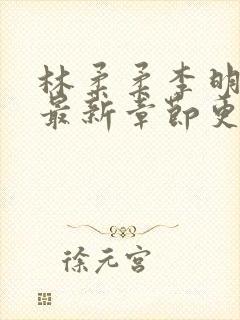 林柔柔李明
最新章节更
徐元宫